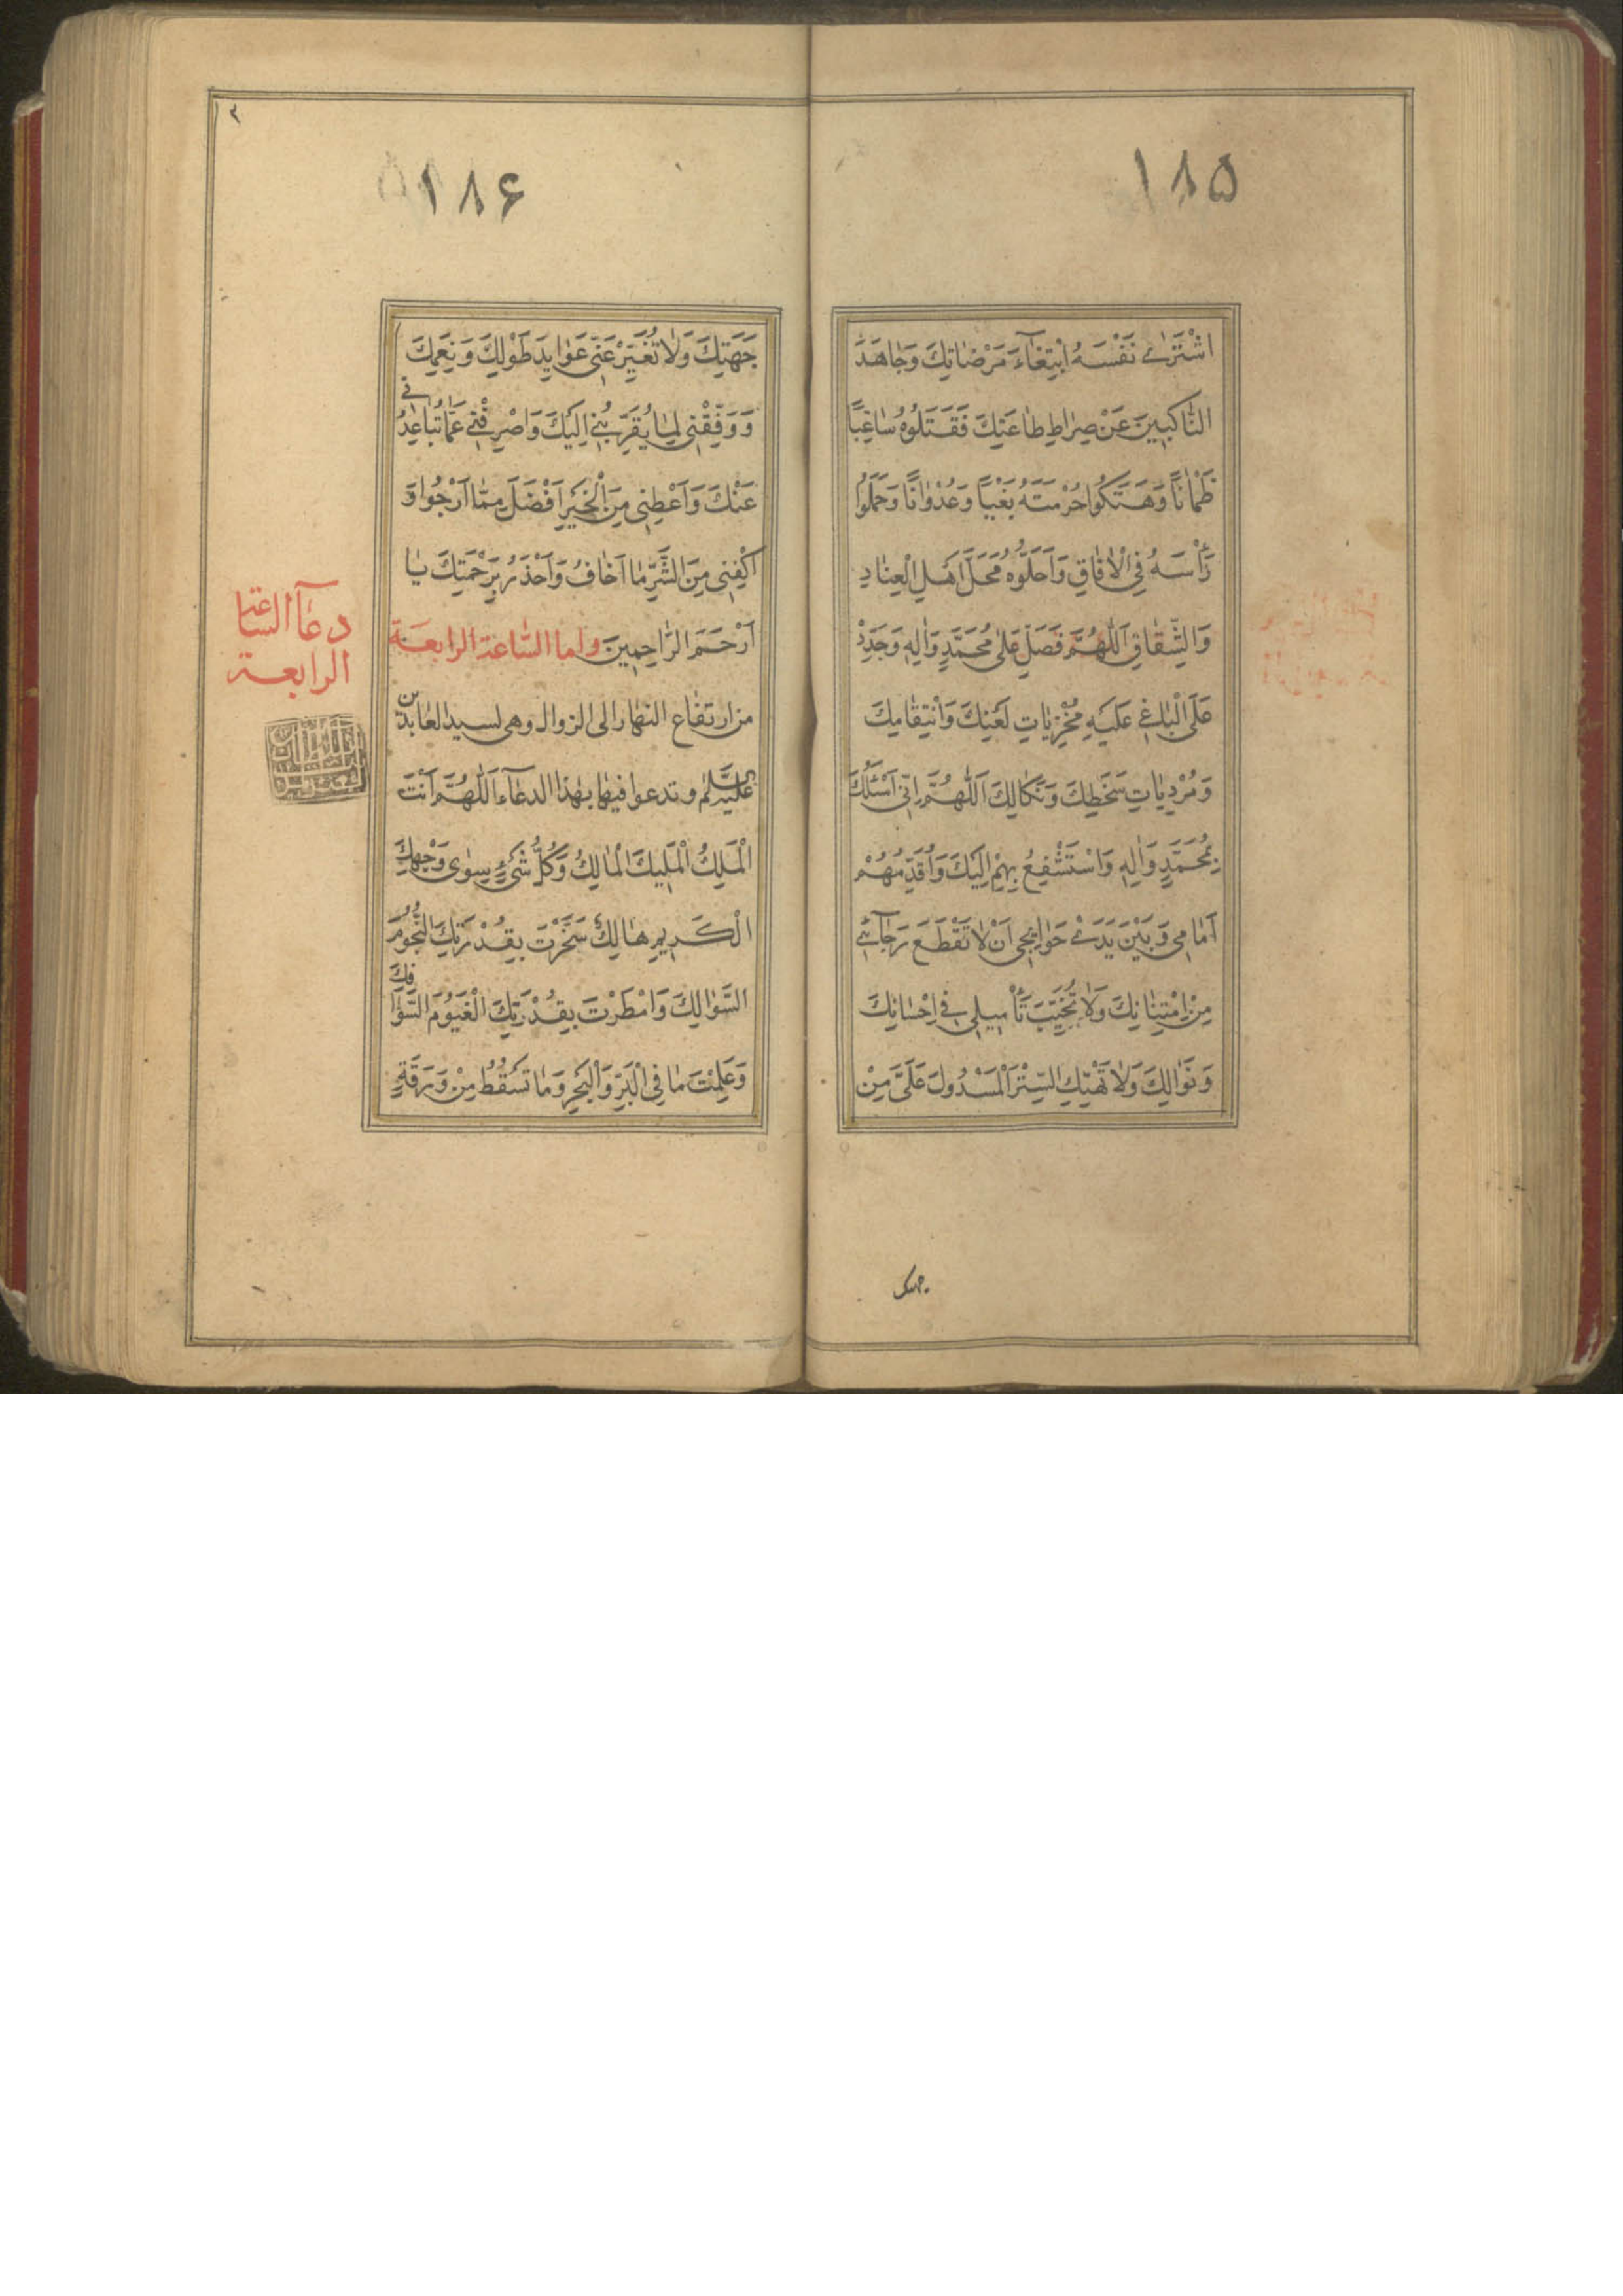 ١٨٥
اشْتَرٰى نَفْسَهُ ابْتِغٰآءَ مَرْضٰاتِكَ وَجٰاهَدَ
النّٰاكِبِينَ عَنْ صِرٰاطِ طٰاعَتِكَ فَقَتَلُوهُ سٰاغِبًا
ظَمْاٰنًا وَهَتَكُوا حُرْمَتَهُ بَغْيًا وَعُدْوٰانًا وَحَمَلُوا
رَأْسَهُ فِي الْاٰفٰاقِ وَاَحَلُّوهُ مَحَلَّ اَهْلِ الْعِنٰادِ
وَالشِّقٰاقِ اَللّٰهُمَّ فَصَلِّ عَلٰى مُحَمَّدٍ وَاٰلِهِ وَجَدِّدْ
عَلَى الْبٰاغِي عَلَيْهِ مُخْزِيٰاتِ لَعْنِكَ وَانْتِقٰامِكَ
وَمُرْدِيٰاتِ سَخَطِكَ وَنَكٰالِكَ اَللّٰهُمَّ اِنِّي اَسْئَلُكَ
بِمُحَمَّدٍ وَاٰلِهِ وَاسْتَشْفِعُ بِهِمْ اِلَيْكَ وَاُقَدِّمُهُمْ
اَمٰامِي وَبَيْنَ يَدَيْ حَوٰايِجِي اَنْ لٰا تَقْطَعَ رَجٰآئِي
مِنْ اِمْتِنٰانِكَ وَلٰا تُخَيِّبَ تَأْمِيلِي فِي اِحْسٰانِكَ
وَنَوٰالِكَ وَلٰا تَهْتِكِ السِّتْرَ الْمَسْدُولَ عَلَيَّ مِنْ
جهتك
٢
١٨۶
جَهَتِكَ وَلٰا تُغَيِّرْ عَنِّي عَوٰايِدَ طَوْلِكَ وَنِعَمِكَ
وَوَفِّقْنِي لِمٰا يُقَرِّبُنِي اِلَيْكَ وَاصْرِفْنِي عَمّٰا تُبٰاعِدُنِي
عَنْكَ وَاَعْطِنِي مِنَ الْخَيْرِ اَفْضَلَ مِمّٰا اَرْجُوا وَ
اكْفِنِي مِنَ الشَّرِّ مٰا اَخٰافُ وَاَحْذَرُ بِرَحْمَتِكَ يٰا
اَرْحَمَ الرّٰاحِمِينَ واما السّاعة الرابعة
من ارتفاع النهار الى الزوال وهى لسيد العابدين
عليه السّلم وتدعوا فيها بهذا الدعآء اَللّٰهُمَّ اَنْتَ
الْمَلِكُ الْمَلِيكُ الْمٰالِكُ وَكُلُّ شَيْءٍ سِوٰى وَجْهِكَ
الْكَرِيمِ هٰالِكٌ سَخَّرْتَ بِقُدْرَتِكَ النُّجُومَ
السَّوٰالِكَ وَامْطَرْتَ بِقُدْرَتِكَ الْغُيُومَ السَّوٰافِكَ
وَعَلِمْتَ مٰا فِي الْبَرِّ وَالْبَحْرِ وَمٰا تَسْقُطُ مِنْ وَرَقَةٍ
دعآ السّاعة
الرابعة